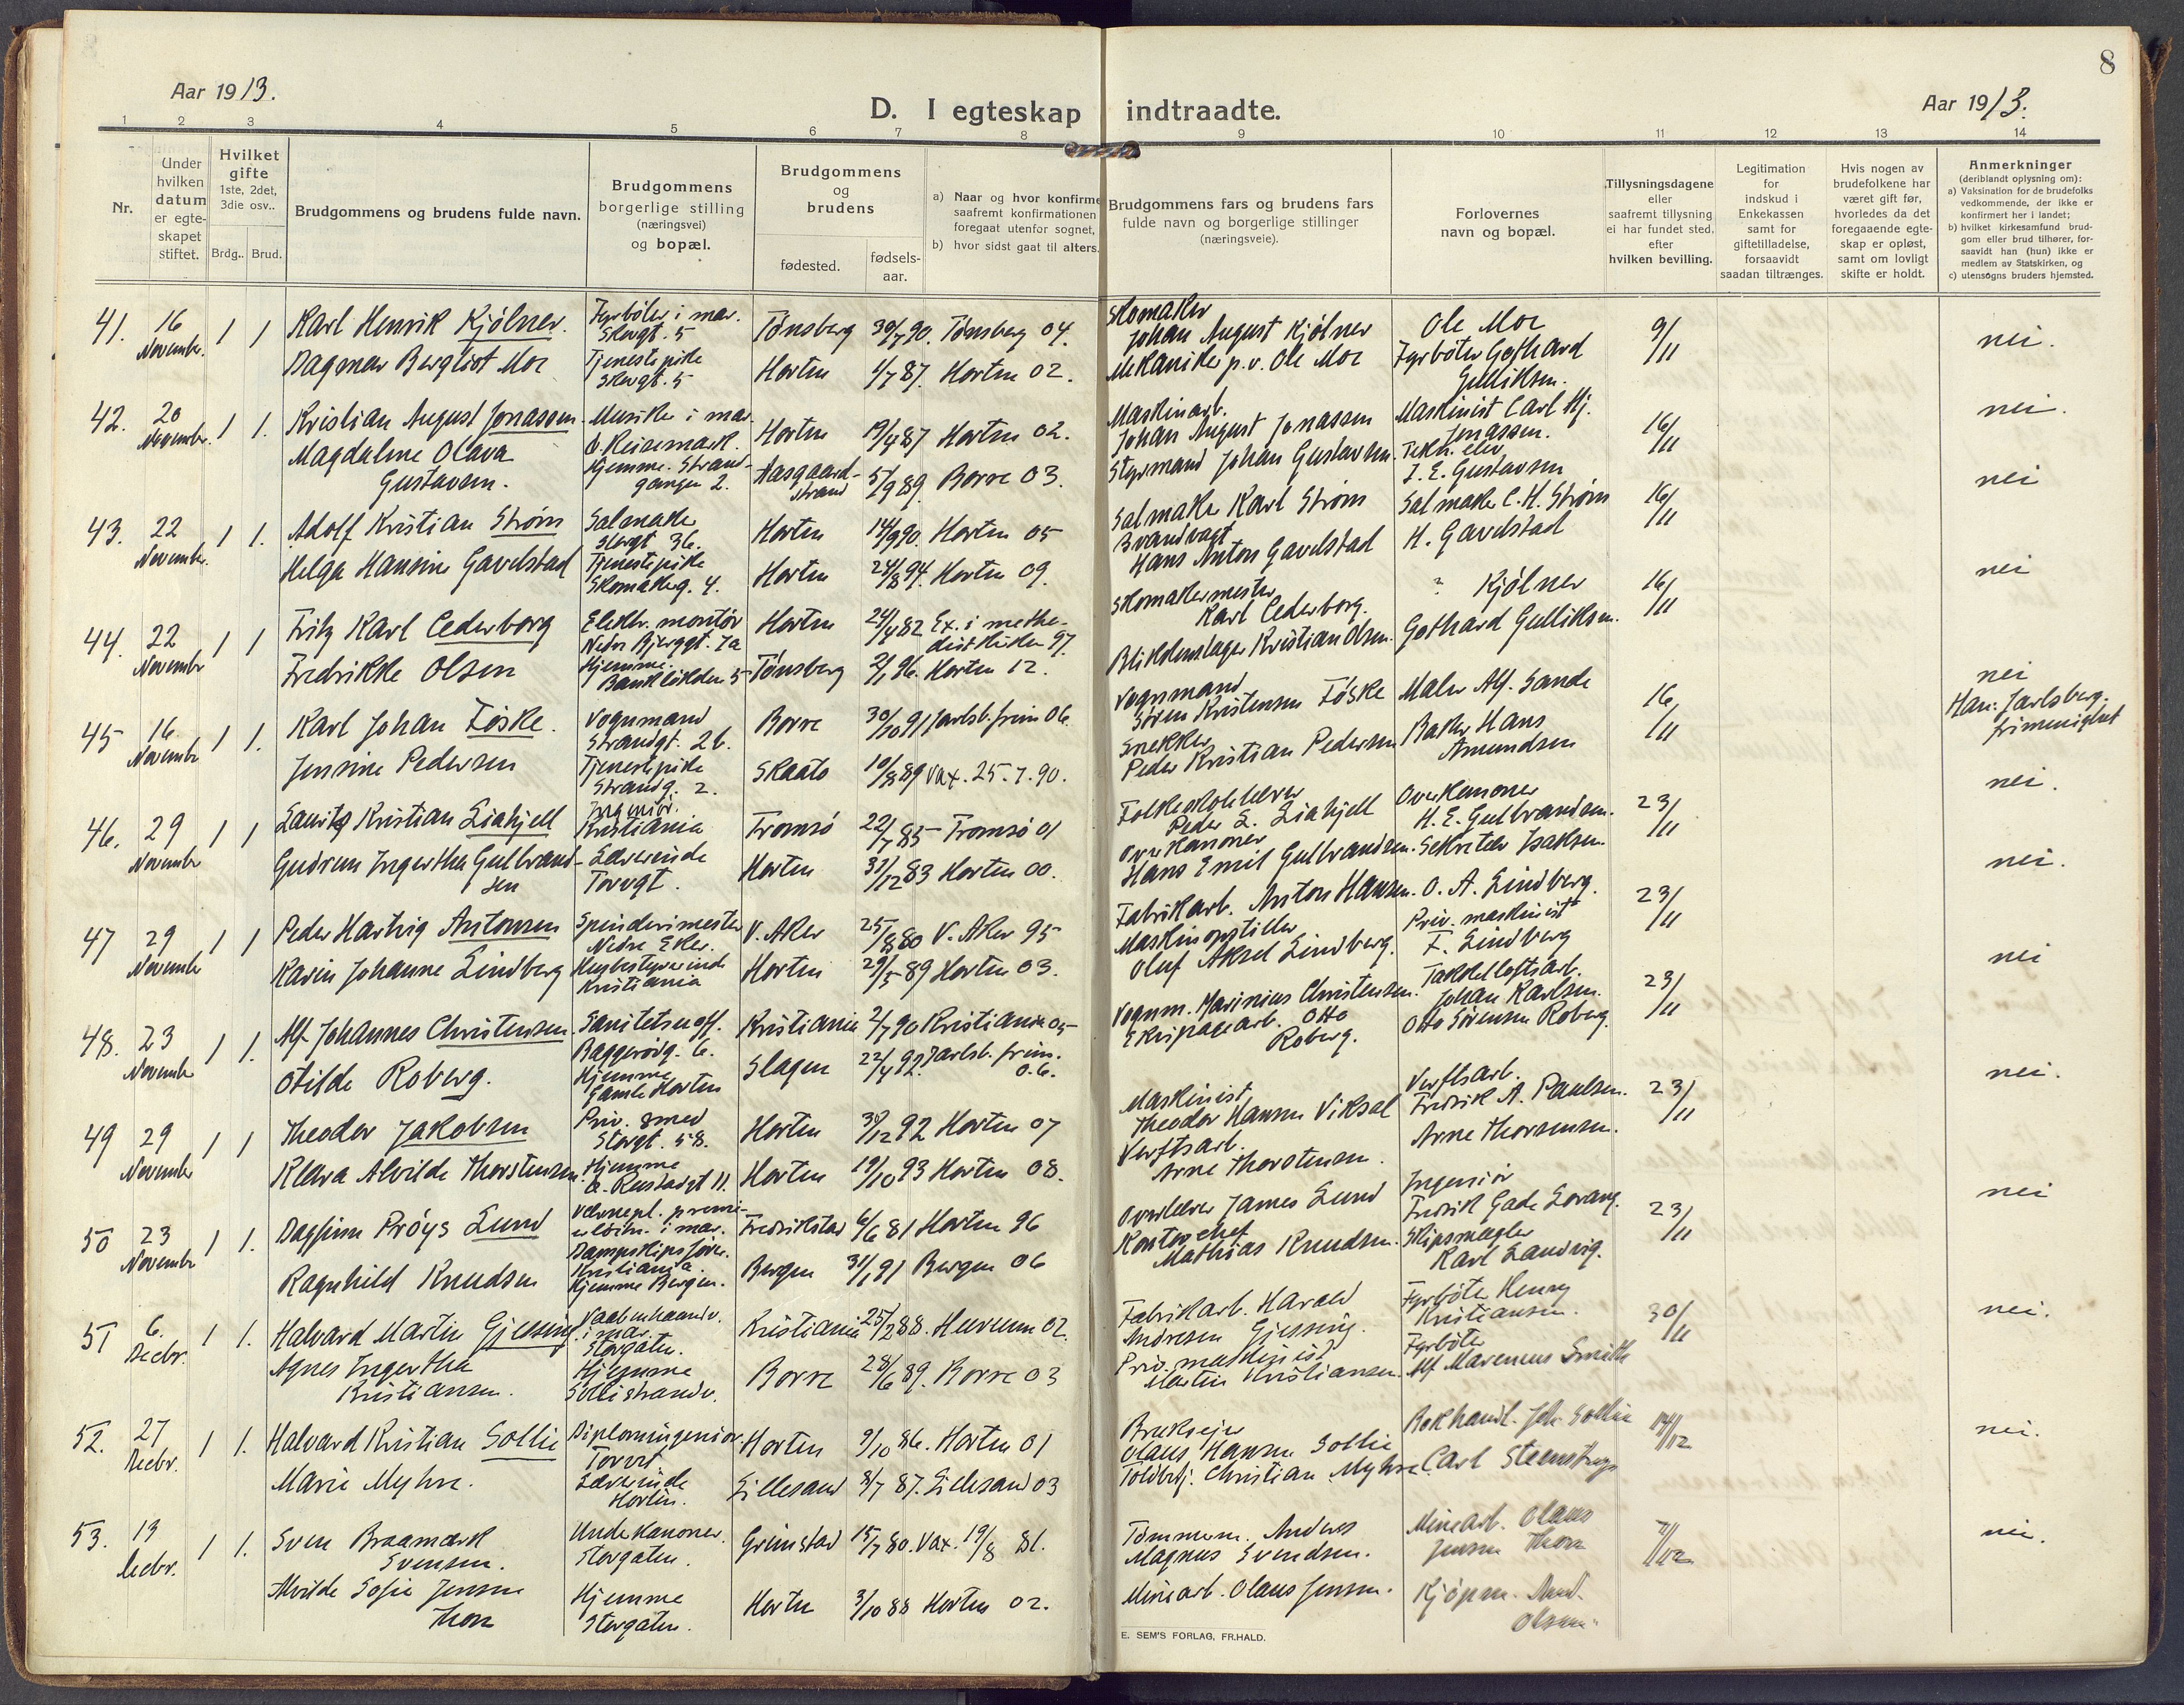 8
Aar 1913.
D. I egteskap indtraadte.
Aar 1913.
1 2 3 4 5 6 7 8 9 10 11 12 13 14
Nr.
Under hvilken datum er egteskapet stiftet.
Hvilket gifte 1ste, 2det, 3die osv..
Brdg.. Brud.
Brudgommens og brudens fulde navn.
Brudgommens borgerlige stilling (næringsvei) og bopæl.
Brudgommens og brudens
fødested.
fødsels-aar.
a) Naar og hvor konfirme
saafremt konfirmationen
foregaat utenfor sognet,
b) hvor sidst gaat til alters.
Brudgommens fars og brudens fars
fulde navn og borgerlige stillinger
(næringsveie).
Forlovernes
navn og bopæl.
Tillysningsdagene
eller
saafremt tillysning
ei har fundet sted,
efter
hvilken bevilling.
Legitimation
for
indskud i
Enkekassen
samt for
giftetilladelse,
forsaavidt
saadan tiltrænges.
Hvis nogen av
brudefolkene har
været gift før,
hvorledes da det
foregaaende egte-
skap er opløst,
samt om lovligt
skifte er holdt.
Anmerkninger
(deriblandt oplysning om):
a) Vaksination for de brudefolks
vedkommende, der ikke er
konfirmert her i landet;
b) hvilket kirkesamfund brud-
gom eller brud tilhører, for-
saavidt han (hun) ikke er
medlem av Statskirken, og
c) utensogns bruders hjemsted.
41. 16 November. 1 1 Karl Henrik Kjølner. Fyrbøter i mar. Storgt. 5 Tønsberg 30/7 90. Tønsberg 04. Skomaker Johan August Kjølner Ole Moe 9/11 nei.
Dagmar Bergliot Moe Tjenestepike Storgt. 5 Horten 4/7 87. Horten 02. Mekaniker p.v. Ole Moe Fyrbøter Gothard Gulliksen.
42. 20 November. 1 1. Kristian August Jonassen Musiker i mar. Ø. Keisemark. Horten 19/4 87 Horten 02. Maskinarb. Johan August Jonassen Maskinist Carl Hj. Jonassen. 16/11 nei.
Magdalene Olava Gustavsen. Hjemme. Strandgangen 2. Aasgaardstrand 5/9 89. Borre 03. Styrmand Johan Gustavsen. Tekn. elev J. E. Gustavsen
43. 22 November. 1 1. Adolf Kristian Strøm Salmaker Storgt 36. Horten 14/9 90. Horten 05 Salmaker Karl Strøm Salmaker C. H. Strøm 16/11 nei
Helga Hansine Gavelstad Tjenestepike Skomakerg. 4. Horten 24/8 94. Horten 09. Brandvagt Hans Anton Gavelstad H. Gavelstad
44. 22 November 1 1 Fritz Karl Cederborg Elektr. montør Nedre Bjerggt. 7a Horten 24/4 82 Ex. i methodistkirken 97. Skomakermester Karl Cederborg. ? Kjølner 16/11 nei
Fredrikke Olsen Hjemme. Bankløkken 5 Tønsberg 2/1 96. Horten 12. Blikkenslager Kristian Olsen. Gothard Gulliksen.
45 16 November 1 1. Karl Johan Føske. Vognmand Strandgt. 26. Borre 30/10 91 Jarlsb. frim 06. Vognmand Søren Kristensen Føske Maler Alf. Sande 16/11 nei Han: Jarlsberg. frimenighet
Jensine Pedersen Tjenestepike Strandg. 2. Skaatø 10/8 89 Vax. 25.7.90. Snekker Peder Kristian Pedersen Baker Hans Amundsen
46. 29 November 1 1 Lauritz Kristian Liahjell Ingeniør. Kristiania Tromsø 22/7 85 Tromsø 01 Folkeskolelærer Peder L. Liahjell Overkanoner H. E. Gulbrandsen. 23/11 nei.
Gudrun Ingertha Gulbrandsen Lærerinde Torvgt. Horten 31/12 83 Horten 00. Overkanoner Hans Emil Gulbrandsen. Sekretær Isaksen.
47 29 November 1 1 Peder Hartvig Antonsen Spinderimester Nedre Eker. V. Aker 25/8 80 V. Aker 95 Fabrikarb. Anton Hansen. O. A. Lindberg. 23/11 nei.
Karin Johanne Lindberg Husbestyrerinde Kristiania Horten 29/5 89 Horten 03. Maskinopstiller Oluf Aksel Lindberg. Priv. maskinist F. Lindberg
48. 23 November 1 1. Alf Johannes Christensen Sanitetsuoff. Baggerødg. 6. Kristiania 2/7 90 Kristiania 05 Vognm. Marinius Christensen. Takkelloftsarb. Johan Karlsen. 23/11 nei
Otilde Roberg. Hjemme Gamle Horten Slagen 22/4 92. Jarlsb. frim. 06. Ekvipagearb. Otto Roberg. Otto Sørensen Roberg.
49 29 November 1 1 Theodor Jakobsen Priv. smed Storgt. 58. Horten 31/12 92 Horten 07 Maskinist Theodor Hansen Viksal Verftsarb. Fredrik A. Paulsen. 23/11 nei.
Klara Alvilde Thorstensen Hjemme Horten 19/10 93 Horten 08. Verftsarb. Arne Thorstensen. Arne Thorsensen.
50 23 November 1 1. Dagfinn Prøys Lund Værnepl. premierløitn. i mar. Dampskipsfører. Kristiania. Fredrikstad 6/6 81 Horten 96 Overlærer James Lund Ingeniør Fredrik Gade Lorang. 23/11 nei
Ragnhild Knudsen Hjemme Bergen. Bergen 31/1 91 Bergen 06 Kontorchef Mathias Knudsen. Skipsmægler Karl Landvig.
51 6. Decbr. 1 1. Halvard Martin Gjessing Vaabenhaandv. i mar. Storgaten. Kristiania 25/2 88. Hurum 02. Fabrikarb. Harald Andresen Gjessing. Fyrbøter Henry Kristiansen. 30/11 nei.
Agnes Ingertha Kristiansen. Hjemme Sollistrandv. Borre 28/6 89. Borre 03 Priv. maskinist Martin Kristiansen. Fyrbøter Alf Marenius Smith
52. 27 Decbr. 1 1. Halvard Kristian Sollie Diplomingeniør. Torvet Horten 9/10 86. Horten 01 Brukseier Olaus Hansen Sollie Bokhandl. Joh. Sollie 14/12 nei.
Marie Myhre. Lærerinde Horten. Lillesand 8/7 87. Lillesand 03 Toldbetj. Christian Myhre Carl Steenstrup
53. 13 Decbr. 1 1. Sven Braamark Svensen. Underkanoner. Storgaten. Grimstad 15/7 80. Vax. 19/8 81. Tømmerm. Anders Magnus Svendsen. Minearb. Olaus Jensen Thon 7/12 nei.
Alvilde Sofie Jensen Thon Hjemme Storgaten. Horten 3/10 88 Horten 02. Minearb. Olaus Jensen. Kjøpm. And. Olsen.
E. SEM'S FORLAG, FR.HALD.